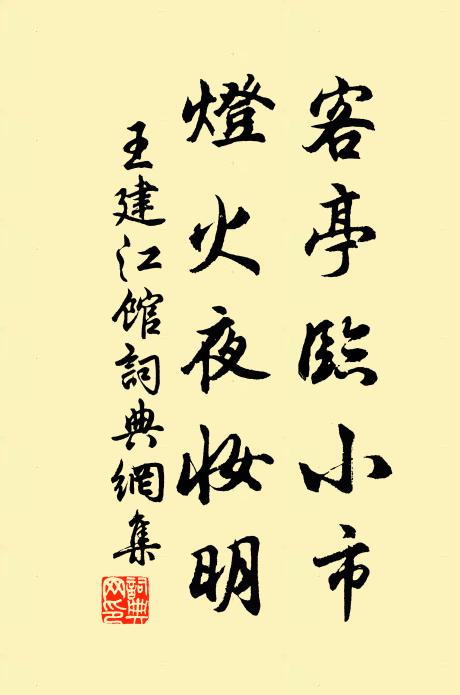 客亭臨小市
燈火夜妝明
王建江館詞典網集
詞典網印